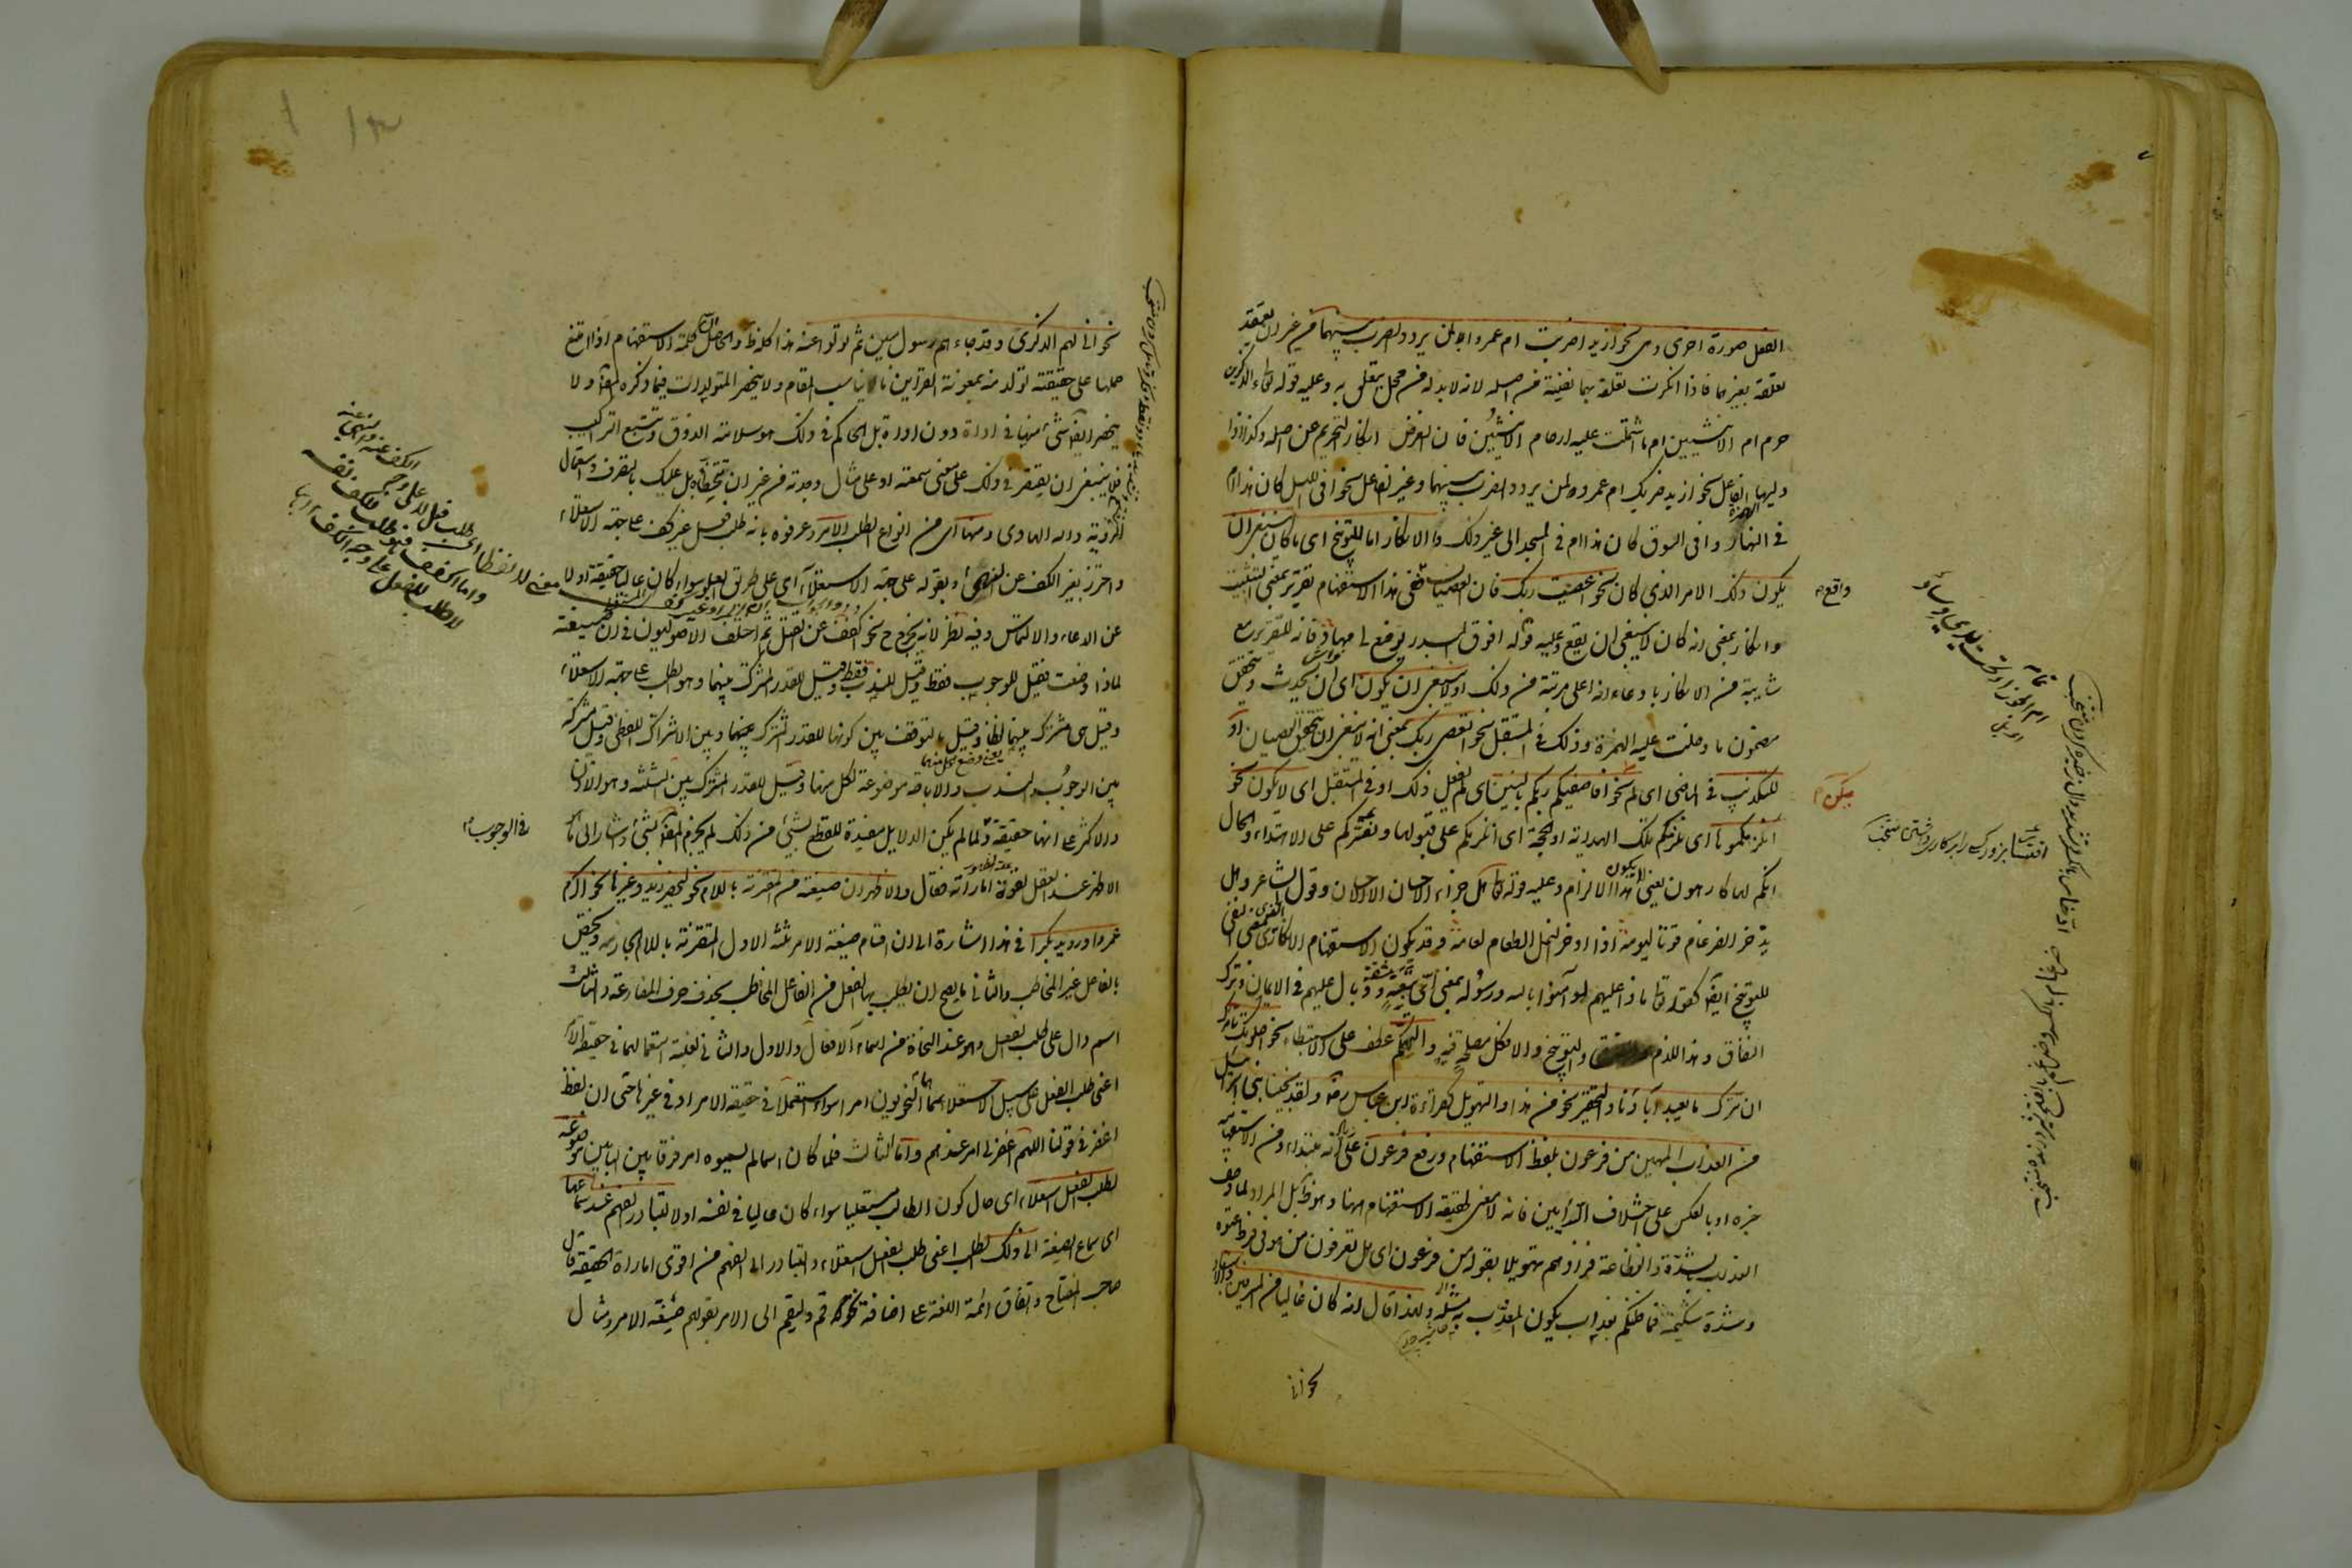 الفعل صورة اخرى وهى نحو ازيدا ضربت ام عمرا لمن يردد الضرب بينهما من غير ان يعتقد
تعلقه بغيرهما فاذا انكرت تعلقه بهما نفيته من اصله لانه لابد له من محل يتعلق به وعليه قوله تعالى آلذكرين
حرم ام الانثيين ام ما اشتملت عليه ارحام الانثيين فان الغرض انكار التحريم عن اصله وكذا اذا
وليها الفاعل نحو ازيد ضربك ام عمرو لمن يردد الضرب بينهما وغير الفاعل نحو افى الليل كان هذا ام
فى النهار وافى السوق كان هذا ام فى المسجد الى غير ذلك والانكار اما للتوبيخ اى ما كان ينبغى ان
يكون ذلك الامر الذى كان نحو اعصيت ربك فان العصيان واقع ففى هذا الاستفهام تقرير بمعنى التثبيت
وانكار بمعنى انه كان لا ينبغى ان يقع وعليه قوله افوق البدر يوضع لى مهاد فانه للتقرير مع
شايبة من الانكار بادعاء انه اعلى مرتبة من ذلك او لا ينبغى ان يكون اى ان يحدث ويتحقق
مضمون ما دخلت عليه الهمزة وذلك فى المستقبل نحو اتعصى ربك بمعنى انه لا ينبغى ان يتحقق العصيان او
للتكذيب فى الماضى اى لم يكن نحو افاصفيكم ربكم بالبنين اى لم يفعل ذلك او فى المستقبل اى لا يكون نحو
انلزمكموها اى انلزمكم تلك الهداية او الحجة اى انكرهكم على قبولها ونقسركم على الاهتداء والحال
انكم لها كارهون يعنى لا يكون هذا الالزام وعليه قوله تعالى هل جزاء الاحسان الا الاحسان وقول الشاعر وهل
يدخر الضرغام قوتا ليومه اذا ادخر النمل الطعام لعامه وقد يكون الاستفهام الانكارى بمعنى النفى
للتوبيخ ايضا كقوله تعالى ماذا عليهم لو آمنوا بالله ورسوله بمعنى اى تبعة ووبال عليهم فى الايمان وترك
النفاق وهذا للذم والتوبيخ والا فكل مصلحة فيه والتهكم عطف على الاستبطاء نحو اصلوتك تأمرك
ان نترك ما يعبد آباؤنا والتحقير نحو من هذا والتهويل كقراءة ابن عباس رضه ولقد نجينا بنى اسرائيل
من العذاب المهين من فرعون بلفظ الاستفهام ورفع فرعون على انه مبتداء ومن الاستفهامية
خبره او بالعكس على اختلاف الرأيين فانه لا معنى لحقيقة الاستفهام ههنا وهو ظ بل المراد لما وصف
العذاب بالشدة والفظاعة فزادهم تهويلا بقوله من فرعون اى هل تعرفون من هو فى فرط عتوه
وشدة شكيمته فما ظنكم بعذاب يكون المعذب به مثله ولهذا قال انه كان عاليا من المسرفين والاستبعاد
نحو انى
واقع
يكن
نحو انى لهم الذكرى وقد جاءهم رسول مبين ثم تولوا عنه هذا كله ظ والحاصل ان كلمة الاستفهام اذا امتنع
حملها على حقيقته تولد منه بمعونة القراين ما يناسب المقام ولا ينحصر المتولدات فيما ذكره المص ولا
ينحصر ايضا شئ منها فى اداة دون اداة بل الحاكم فى ذلك هو سلامة الذوق وتتبع التراكيب
فلا ينبغى ان يقتصر فى ذلك على معنى سمعته او على مثال وجدته من غير ان تتخطاه بل عليك بالتصرف واستعمال
الروية والله الهادى ومنها اى من انواع الطلب الامر وعرفوه بانه طلب فعل غير كف على جهة الاستعلاء
واحترز بغير الكف عن النهى وبقوله على جهة الاستعلاء اى على طريق العلو سواء كان عاليا حقيقة او لا
عن الدعاء والالتماس وفيه نظر لانه يخرج ح نحو اكفف عن القتل ثم اختلف الاصوليون فى ان صيغته
لماذا وضعت فقيل للوجوب فقط وقيل للندب فقط وقيل للقدر المشترك بينهما وهو الطلب على جهة الاستعلاء
وقيل هى مشترك بينهما لفظا وقيل بالتوقف بين كونها للقدر المشترك بينهما وبين الاشتراك اللفظى وقيل مشتركة
بين الوجوب والندب والاباحة موضوعة لكل منها وقيل للقدر المشترك بين الثلثة وهو الاذن
والاكثر على انها حقيقة فى الوجوب ولما لم يكن الدلايل مفيدة للقطع بشئ من ذلك لم يجزم المص بشئ واشار الى ما هو
الاظهر عنده لقوة اماراته فقال والاظهر ان صيغته من المقترنة باللام نحو ليحضر زيد وغيرها نحو اكرم
عمروا ورويد بكرا فى هذا اشارة الى ان اقسام صيغة الامر ثلثة الاول المقترنة باللام الجازمة ويختص
بالفاعل غير المخاطب والثانى ما يصح ان يطلب بها الفعل من الفاعل المخاطب بحذف حرف المضارعة والثالث
اسم دال على طلب الفعل وهو عند النحاة من اسماء الافعال والاول والثانى لغلبة استعمالهما فى حقيقة الامر
اعنى طلب الفعل على سبيل الاستعلاء سماهما النحويون امرا سواء استعملا فى حقيقة الامر او فى غيرها حتى ان لفظ
اغفر فى قولنا اللهم اغفر لى امر عندهم واما الثالث فلما كان اسما لم يسموه امرا فرقا بين البابين موضوعة
لطلب الفعل استعلاء اى حال كون الطالب مستعليا سواء كان عاليا فى نفسه او لا لتبادر الفهم عند سماعها
اى سماع الصيغة الى ذلك الطلب اعنى طلب الفعل استعلاء والتبادر الى الفهم من اقوى امارات الحقيقة قال
صاحب المفتاح واتفاق ائمة اللغة على اضافة نحو قم وليقم الى الامر بقولهم صيغة الامر ومثال
فى الوجوب